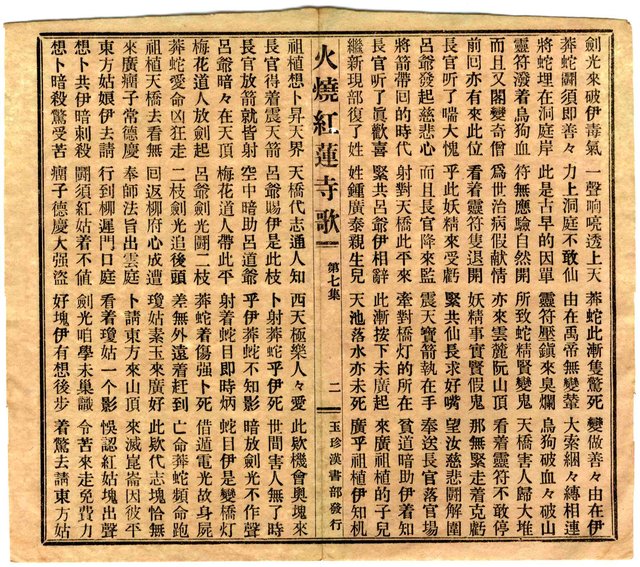 劍光來破伊毒氣 一聲响喨透上天 莽蛇此漸隻驚死 變做善々由在伊
莽蛇鬪須即善々 力上洞庭不敢仙 由在禹帝無變輦 大索綑々縛相連
將蛇埋在洞庭岸 此是古早的因單 靈符壓鎮來臭爛 鳥狗破血々破山
靈符潑着烏狗血 符無應驗自然開 所致蛇精賢變鬼 天橋害人歸大堆
而且又閣變奇僧 為世治病假献情 亦來雲麓阮山頂 看着靈符不敢停
前回亦有來此位 看着靈符隻退開 妖精事實賢假鬼 那無緊走着克虧
長官听了喘大愧 乎此妖精來受虧 緊共仙長求好嘴 望汝慈悲鬪解圍
呂爺發起慈悲心 而且長官降來監 震天寶箭執在手 奉送長官落官場
將箭帶回的時代 射對天橋此平來 牽對橋灯的所在 貧道暗助伊着知
長官听了眞歡喜 緊共呂爺伊相辭 此漸按下未廣起 來廣祖植的子兒
繼新現部復了姓 姓鍾廣泰親生兒 天池落水亦未死 廣乎祖植伊知机
火燒紅蓮寺歌 第七集 二 玉珍漢書部發行
祖植想卜昇天界 天橋代志通人知 西天極樂人々愛 此歟機會奧塊來
長官得着震天箭 呂爺賜伊是此枝 卜射莽蛇乎伊死 世間害人無了時
長官放箭就皆射 空中暗助呂道爺 乎伊莽蛇不知影 暗放劍光不作聲
呂爺暗々在天頂 梅花道人帶此平 射着蛇目即時炳 蛇目伊是變橋灯
梅花道人放劍起 呂爺劍光鬪二枝 莽蛇着傷强卜死 借遁電光故身屍
莽蛇愛命凶狂走 二枝劍光追後頭 差無外遠着赶到 亡命莽蛇命跑
祖植天橋去看無 回返柳府心成遭 瓊姑素玉來廣好 此歟代志塊恰無
來廣子常德慶 奉師法旨出雲庭 卜請東方來山頂 來滅崑崙因彼平
東方姑娘伊去請 行到柳遲門口庭 看着瓊姑一个影 悞認紅姑塊出聲
想卜共伊暗刺殺 鬪須紅姑着不值 劍光咱學未巢識 令苦來走免費力
想卜暗殺驚受苦 子德慶大强盜 好塊伊有想後步 着驚去請東方姑